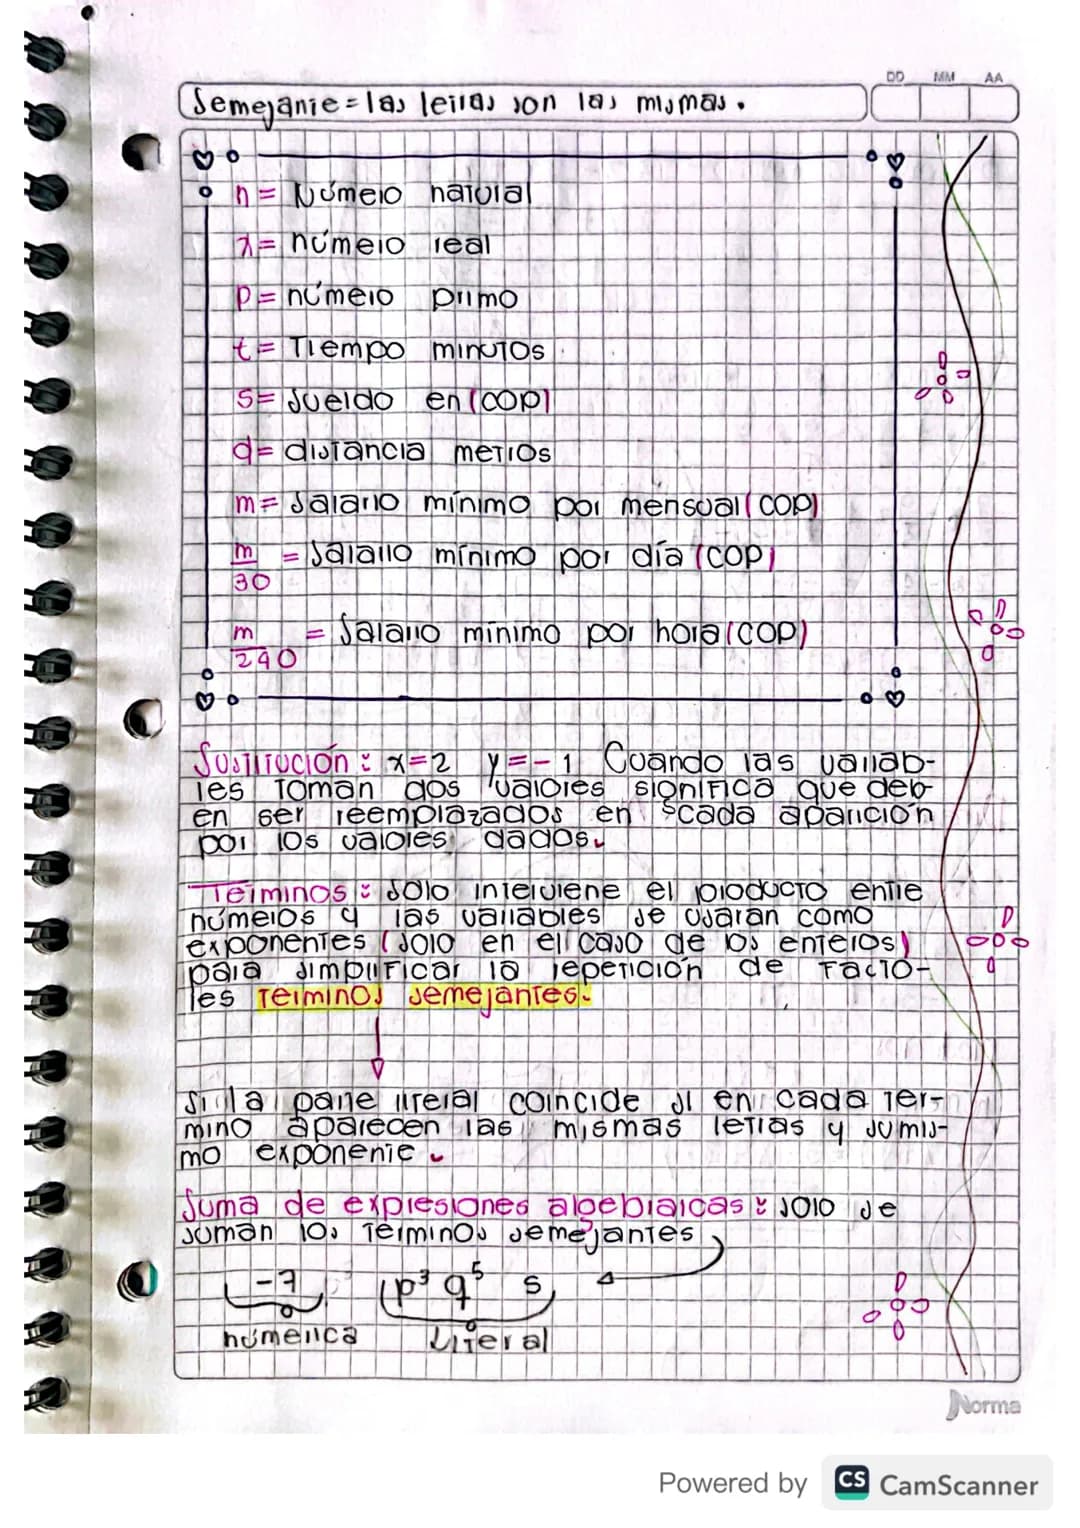 DD MM AA
Semejante = las letras son las mismas.
n = Número natural
x = número real
p = número primo
t = Tiempo minutos
s = sueldo en (COP)
d = distancia metros
m = Salario mínimo por mensual (COP)
m/30 = Salario mínimo por día (COP)
m/240 = Salario mínimo por hora (COP)
Sustitución: x=2 y=-1 Cuando las variab-
les toman dos valores significa que deb-
en ser reemplazados en cada aparición
por los valores dados.
Términos: solo interviene el producto entre
números y las variables se usaran como
exponentes (solo en el caso de los enteros)
para simplificar la repetición de facto-
res términos semejantes.
Si la parte literal coincide si en cada tér-
mino aparecen las mismas letras y sumis-
mo exponente.
Suma de expresiones algebraicas: solo se
suman los términos semejantes
-7 p³ q⁵ s
númerica Literal
Norma
Powered by CS CamScanner